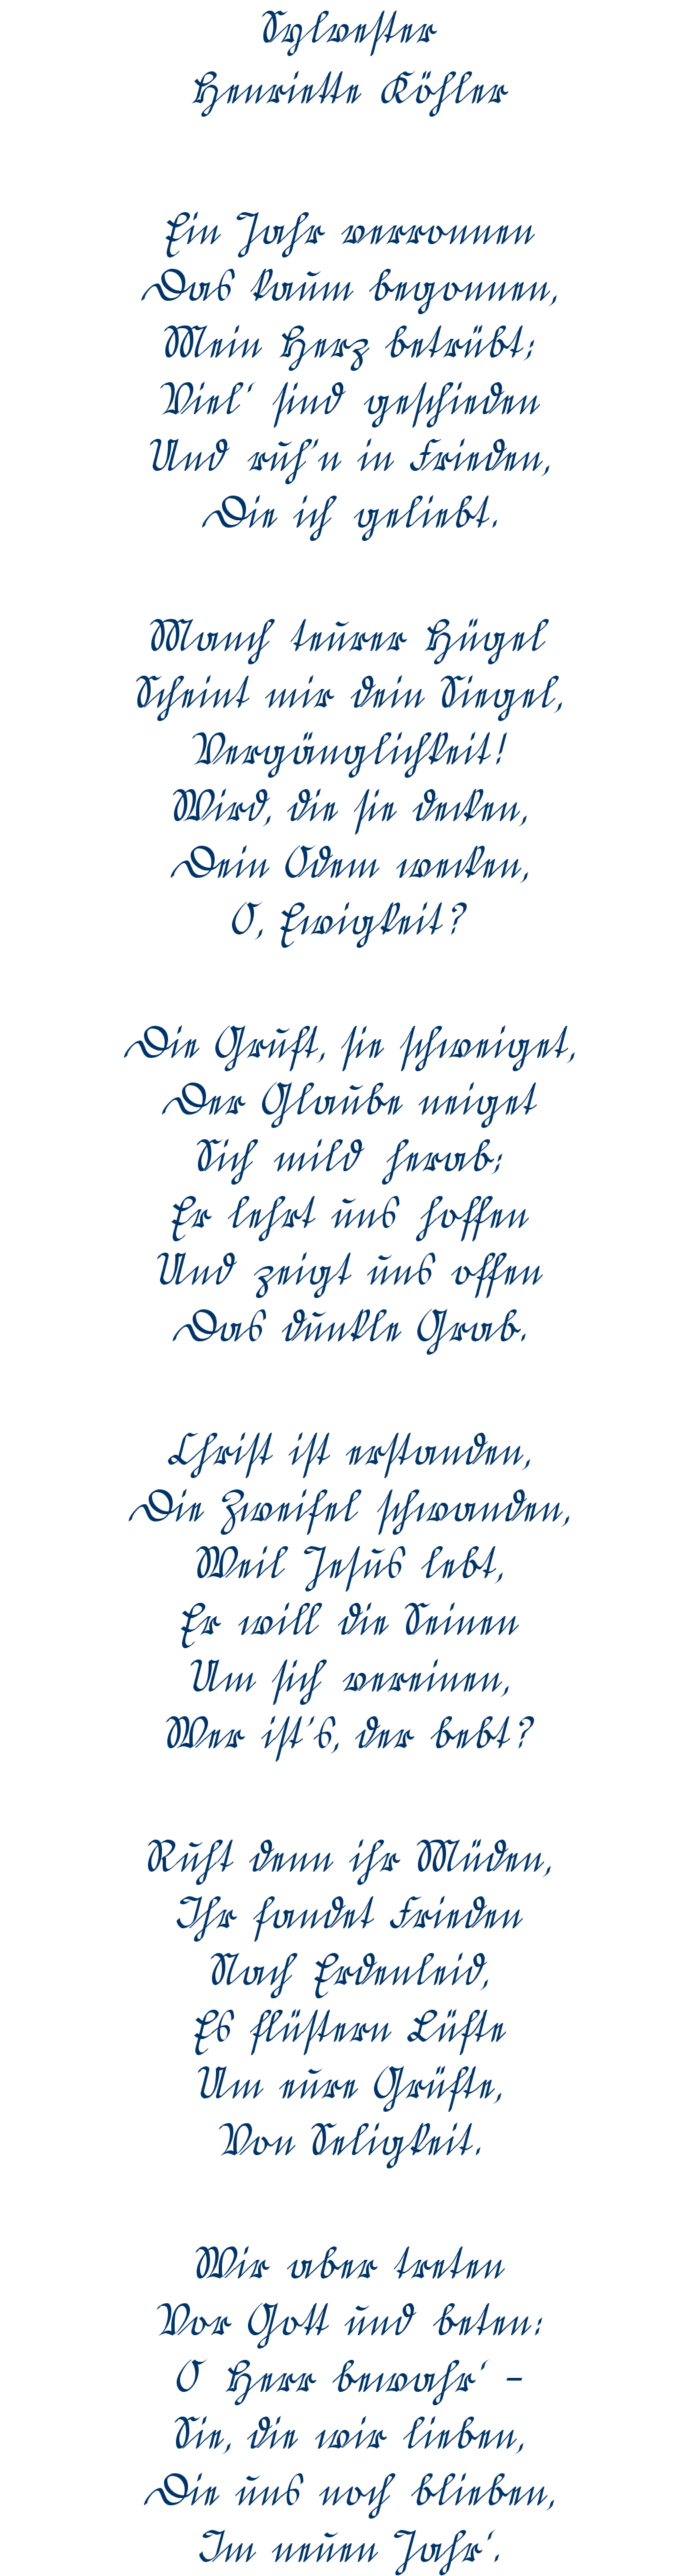 Sylvester
Henriette Köhler
Ein Jahr verronnen
Das kaum begonnen,
Mein Herz betrübt;
Viel' sind geschieden
Und ruh'n in Frieden,
Die ich geliebt.
Manch teurer Hügel
Scheint mir dein Siegel,
Vergänglichkeit!
Wird, die sie decken,
Dein Odem wecken,
O, Ewigkeit?
Die Gruft, sie schweiget,
Der Glaube neiget
Sich mild herab;
Er lehrt uns hoffen
Und zeigt uns offen
Das dunkle Grab.
Christ ist erstanden,
Die Zweifel schwanden,
Weil Jesus lebt,
Er will die Seinen
Um sich vereinen,
Wer ist's, der bebt?
Ruht denn ihr Müden,
Ihr fandet Frieden
Nach Erdenleid,
Es flüstern Lüfte
Um eure Grüfte,
Von Seligkeit.
Wir aber treten
Vor Gott und beten:
O Herr bewahr' –
Sie, die wir lieben,
Die uns noch blieben,
Im neuen Jahr'.